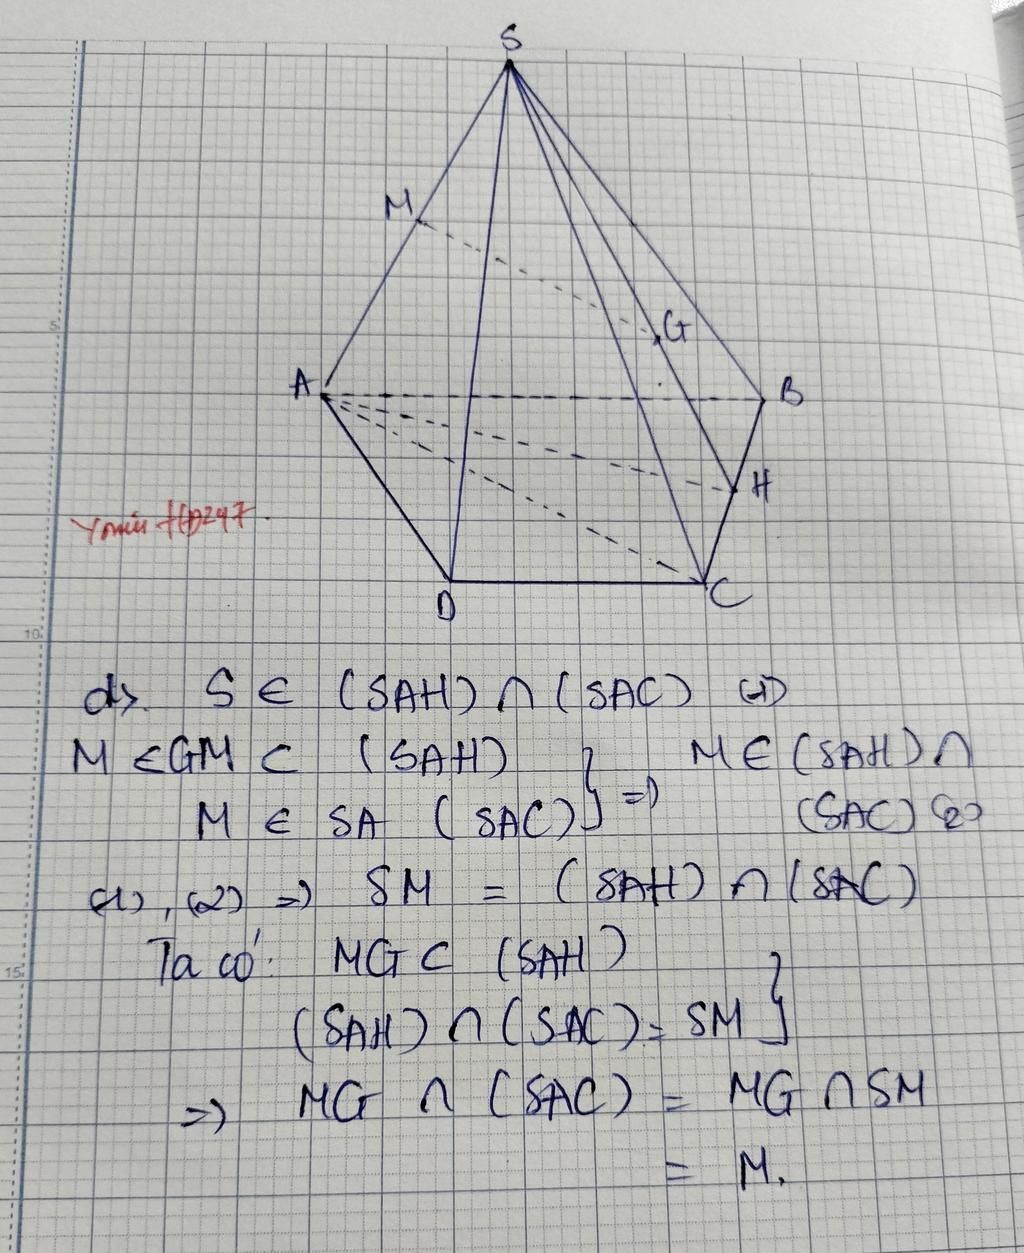 S
M
G
A
B
H
D
C
5
10
15
d>. S ∈ (SAH) ∩ (SAC) (1)
M ∈ GM ⊂ (SAH)
M ∈ SA (SAC) } => M ∈ (SAH) ∩
(SAC) (2)
(1), (2) => SM = (SAH) ∩ (SAC)
Ta có: MG ⊂ (SAH)
(SAH) ∩ (SAC) = SM }
=> MG ∩ (SAC) = MG ∩ SM
= M.